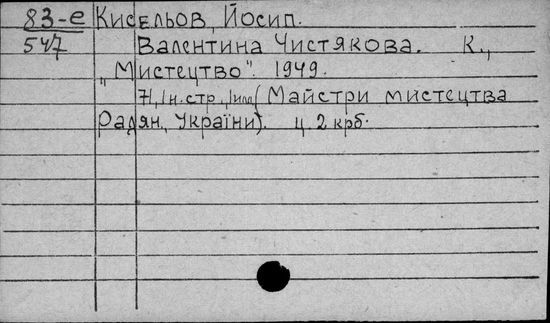 83-е Кисельов, Йосип.
547 Валентина Чистякова. К.,
„Мистецтво". 1949.
71, 1 н. стр., 1 илл. (Майстри мистецтва
Радян, України). ц. 2 крб.